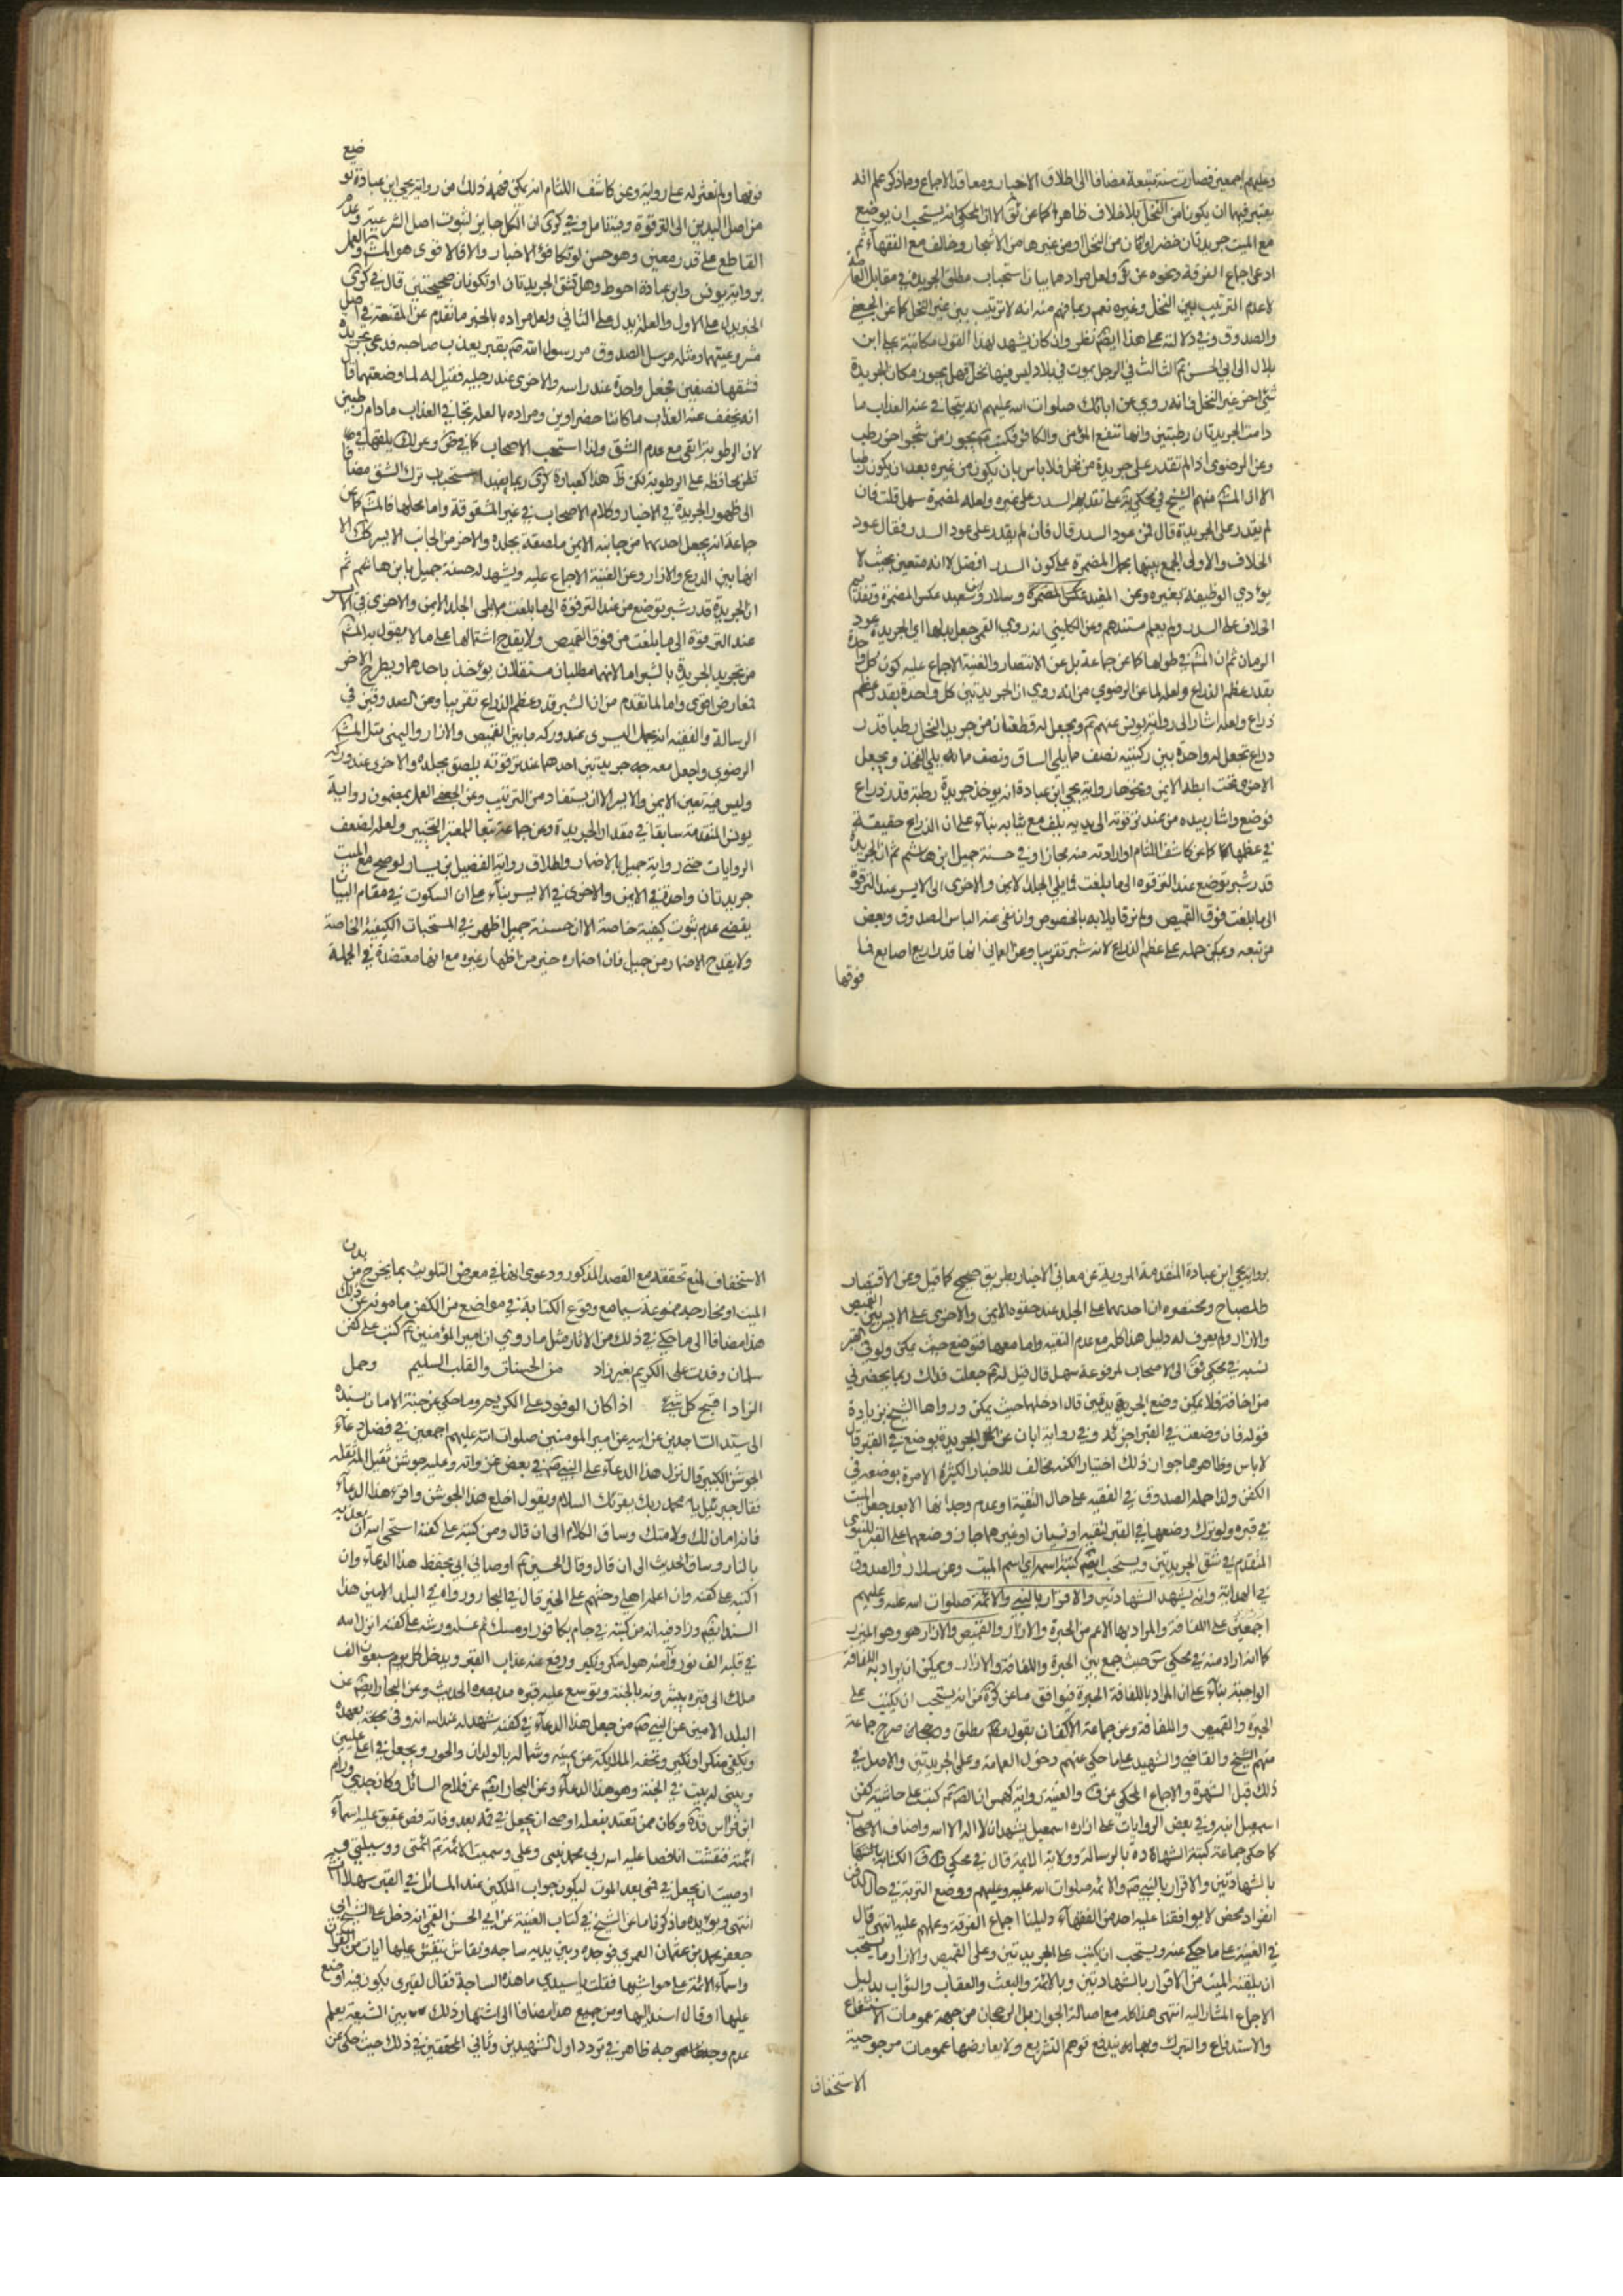 وعليهم اجمعين فصارت سنة متبعة مضافا الى اطلاق الاخبار ومعاقد الاجماع وما ذكر علم انه
يعتبر فيهما ان يكونا من النخل بلا خلاف ظاهر كما عن ق الا ان المحكي انه يستحب ان يوضع
مع الميت جريدتان خضراوتان من النخل او من غيرها من الاشجار وخالف مع الفقهاء ثم
ادعى اجماع الفرقة ونحوه عن ولعل مرادهما بيان استحباب مطلق الجريدة في مقابل العامة
لا عدم الترتيب بين النخل وغيره نعم ربما فهم منه انه لا ترتيب بين غير النخل كما عن الجعفي
والصدوق وفي دلالته على هذا ايضا نظر وان كان يشهد لهذا القول مكاتبة علي ابن
بلال الى ابي الحسن الثالث في الرجل يموت في بلاد ليس فيها نخل فهل يجوز مكان الجريدة
شيء اخر غير النخل فانه روي عن ابائك صلوات الله عليهم انه يتجافى عنه العذاب ما
دامت الجريدتان رطبتين وانها تنفع المؤمن والكافر فكتب يجوز من شجر اخر رطب
وعن الرضوي اذا لم تقدر على جريدة من نخل فلا باس بان يكون من غيره بعد ان يكون رطبا
الا ان منهم الشيخ في محكي على تقديم السدر على غيره ولعله لمضمرة سهل قلت فان
لم يقدر على الجريدة قال من عود السدر قال فان لم يقدر على عود السدر فقال عود
الخلاف والاولى الجمع بينها بحمل المضمرة على كون السدر افضل لا انه متعين بحيث لا
يؤدي الوظيفة بغيره وعن المفيد عكس المضمرة وسلار وابن سعيد عكس المضمرة وتقديم
الخلاف على السدر ولم يعلم مستندهم وعن الكليني انه روي القمي جعل بدلها اي الجريدة عود
الرمان ثم ان في طولها كما عن جماعة بل عن الانتصار والغنية الاجماع عليه كون كل واحدة
بقدر عظم الذراع ولعله لما عن الرضوي من انه روي ان الجريدتين كل واحدة بقدر عظم
ذراع ولعله اشار الى رواية يونس عنهم ويجعل له قطعتان من جريد النخل رطبا قدر
ذراع تجعل له واحدة بين ركبتيه نصف ما يلي الساق ونصف مما يلي الفخذ ويجعل
الاخرى تحت ابطه الايمن ونحوها رواية يحيى ابن عبادة انه يوخذ جريدة رطبة قدر ذراع
فوضع واشار بيده من عند ترقوته الى يديه يلف مع ثيابه بناء على ان الذراع حقيقة
في عظمها كما عن كاشف اللثام او ارادته منه مجازا وفي حسنة جميل ابن ثم ان الجريدة
قدر شبر توضع عند الترقوة الى ما بلغت مما يلي الجلد الايمن والاخرى الى الايسر عند الترقوة
الى ما بلغت فوق القميص ولم نر قايلا به بالخصوص وان نفى عنه الباس الصدوق وبعض
من تبعه ويمكن حمله على عظم الذراع لانه شبر تقريبا وعن العماني انها قدر اربع اصابع فما
فوقها
فوقها ولم نعثر له على رواية وعن كاشف اللثام انه يمكن فهمه ذلك من رواية يحيى ابن عبادة توضع
من اصل اليدين الى الترقوة وفيه تامل وفي كرى ان الكل جايز لثبوت اصل الشرعية وعدم
القاطع على قدر معين وهو حسن لو تكافؤ الاخبار والا فالاقوى هو والعمل
برواية يونس وابن عبادة احوط وهل تشق الجريدتان او تكونان صحيحتين قال في كرى
الخبر يدل على الاول والعلة يدل على الثاني ولعل مراده بالخبر ما تقدم عن المقنعة في اصل
مشروعيتهما ومثله مرسل الصدوق مر رسول الله بقبر يعذب صاحبه فدعى بجريدة
فشقها نصفين فجعل واحدة عند راسه والاخرى عند رجليه فقيل له لما وضعتهما قال
انه يخفف عنه العذاب ما كانتا خضراوين ومراده بالعلة تجافي العذاب ما دام رطبين
لان الرطوبة ابقى مع عدم الشق ولذا استحب الاصحاب
الى ظهور الجريدة في الاخبار وكلام الاصحاب في غير المشقوقة واما محلها كما عن
جماعة انه يجعل احدهما من جانبه الايمن ملصقة بجلده والاخر من الجانب الايسر
انها بين الدرع والازار وعن الغنية الاجماع عليه ويشهد له حسنة جميل ثم
ان الجريدة قدر شبر توضع من عند الترقوة الى ما بلغت مما يلي الجلد الايمن والاخرى في الايسر
عند الترقوة الى ما بلغت من فوق القميص ولا يقدح اشتمالها على ما لا يقول به
من تحديد الجريدة بالشبر اما لانهما مطلبان مستقلان يؤخذ باحدهما ويطرح الاخر
لمعارض اقوى واما لما تقدم من ان الشبر قدر عظم الذراع تقريبا وعن الصدوقين في
الرسالة والفقيه انه يجعل اليسرى عند وركه ما بين القميص والازار واليمنى مثل
الرضوي واجعل معه جريدتين احدهما عند ترقوته يلصق بجلده والاخرى عند وركه
وليس فيه تعين الايمن والايسر الا ان يستفاد من الترتيب وعن الجعفي العمل بمضمون رواية
يونس المتقدمة سابقا في مقدار الجريدة وعن جماعة تبعا للمعتبر التخيير ولعله لضعف
الروايات حتى رواية جميل بالاضمار واطلاق رواية الفضيل بن يسار توضع مع الميت
جريدتان واحدة في الايمن والاخرى في الايسر بناء على ان السكوت في مقام البيان
يقضي عدم ثبوت كيفية خاصة الا ان حسنة جميل اظهر في المستحبات الكيفية الخاصة
ولا يقدح الاضمار من جميل فان اضماره خير من اظهار غيره مع انها معتضدة في الجملة
برواية يحيى ابن عبادة المتقدمة المروية عن معاني الاخبار بطريق صحيح كما قيل وعن الاقتصار
والمصباح ومختصره ان احدهما على الجلد عند حقوه الايمن والاخرى على الايسر بين القميص
والازار ولم يعرف له دليل هذا كله مع عدم التقية واما معها فتوضع حيث يمكن ولو في القبر
نسبه في محكي الى الاصحاب لمرفوعة سهل قال قيل له جعلت فداك ربما يحضرني
من اخافه فلا يمكن وضع الجريدة قال ادخلها حيث يمكن ورواها الشيخ بزيادة
قوله فان وضعت في القبر اجزئه وفي رواية ابان عن الجريدة يوضع في القبر قال
لا باس وظاهرهما جواز ذلك اختيار الكنه مخالف للاخبار الكثيرة الامرة بوضعه في
الكفن ولذا حمله الصدوق في الفقيه على حال التقية او عدم وجدانها الا بعد جعل الميت
في قبره ولو ترك وضعها في القبر لتقية او نسيان او غيرهما جاز وضعها على القبر للنبوي
المتقدم في شق الجريدتين ويستحب ايضا كتبة اسمه اي اسم الميت وعن سلار والصدوق
في الهداية وانه يشهد الشهادتين والاقرار بالنبي والائمة صلوات الله عليه وعليهم
اجمعين على اللفافة والمراد بها الاعم من الحبرة والازار والقميص والازار هو وهو الميزر
كما انه اراد منه في محكي حيث جمع بين الحبرة واللفافة والازار ويمكن ان يراد به اللفافة
الواجبة بناء على ان المراد باللفافة الحبرة فيوافق ما عن انه يستحب ان يكتب على
الحبرة والقميص واللفافة وعن جماعة الاكفان بقول مطلق صرح جماعة
منهم الشيخ والقاضي والشهيد على ما حكي عنهم وحول العمامة وعلى الجريدتين والاصل في
ذلك قبل الشهرة والاجماع المحكي عن والغنية رواية كهمس ان كتب على حاشية كفن
اسمعيل ابنه وفي بعض الروايات على ازاره اسمعيل يشهد ان لا اله الا الله واضاف الاصحاب
كما حكى جماعة كتبة الشهادة بالرسالة وولاية الائمة قال في محكي الكتابة
بالشهادتين والاقرار بالنبي والائمة صلوات الله عليه وعليهم ووضع التربة في حال الدفن
انفراد محض لا يوافقنا عليه احد من الفقهاء دليلنا اجماع الفرقة وعملهم عليه انتهى قال
في الغنية على ما حكي عنه ويستحب ان يكتب على الجريدتين وعلى القميص والازار ما يستحب
ان يلقنه الميت من الاقرار بالشهادتين وبالائمة والبعث والعقاب والثواب بدليل
الاجماع المشار اليه انتهى هذا كله مع اصالة الجواز بل الرجحان من جهة عمومات الاستشفاع
والاستدفاع والتبرك يندفع توهم التشريع ولا يعارضها عمومات مرجوحية
الاستخفاف
الاستخفاف لمنع تحققه مع القصد المذكور ودعوى انها في معرض التلويث بما يخرج من بدن
الميت او مخارجه ممنوعة سيما مع وقوع الكتابة في مواضع من الكفن مامونة عن ذلك
هذا مضافا الى ما حكي في ذلك من الاثار مثل ما روي ان امير المؤمنين كتب على كفن
سلمان وفدت على الكريم بغير زاد من الحسنات والقلب السليم وحمل
الزاد اقبح كل شيء اذا كان الوفود على الكريم وما حكي عن جنة الامان بسنده
الى سيد الساجدين عن ابيه عن امير المومنين صلوات الله عليهم اجمعين في فضل دعاء
الجوشن الكبير قال نزل هذا الدعاء على النبي في بعض غزواته وعليه جوشن ثقيل المه ثقله
فقال جبرئيل يا محمد ربك يقرئك السلام ويقول اخلع هذا الجوشن واقرء هذا الدعاء
فانه امان لك ولامتك وساق الكلام الى ان قال ومن كتبه على كفنه استحى الله ان يعذبه
بالنار وساق الحديث الى ان قال وقال الحسين اوصاني ابي بحفظ هذا الدعاء وان
اكتبه على كفنه وان اعلمه اهلي وحثهم على الخير قال في البحار ورواه في البلد الامين بهذا
السند ايضا وزاد فيه انه من كتبه في جام بكافور او مسك ثم غسله ورشه على كفنه انزل الله
في قبره الف نور وآمنه هول منكر ونكير ورفع عنه عذاب القبر ويدخل كل يوم سبعون الف
ملك الى قبره يبشرونه بالجنة ويوسع عليه قبره مد بصره الحديث وعن البحار ايضا عن
البلد الامين عن النبي من جعل هذا الدعاء في كفنه شهد له عند الله انه وفى بعهده
ويكفى منكر ونكير وتحفه الملائكة عن يمينه وشماله بالولدان والحور ويجعل في اعلى عليين
ويبنى له بيت في الجنة وهو هذا الدعاء وعن البحار ايضا عن فلاح السائل وكان جدي ورام
ابن فراس وكان ممن يقتدى بفعله اوصى ان يجعل في فمه بعد وفاته فص عقيق عليه اسماء
ائمته فنقشت انا فصا عليه الله ربي محمد نبيي وعلي وسميت الائمة ائمتي ووسيلتي
اوصيت ان يجعل في فمي بعد الموت ليكون جواب الملكين عند المسائل في القبر سهلا
انتهى ويؤيده ما ذكرنا ما عن الشيخ في كتاب الغيبة عن ابي الحسن القمي انه دخل على الشيخ ابي
جعفر محمد بن عثمان العمري فوجده وبين يديه ساجة ونقاش ينقش عليها ايات من القران
واسماء الائمة على حواشيها فقلت يا سيدي ما هذه الساجة فقال لقبري يكون فيه اوضع
عليها او قال اسند اليها ومن جميع هذا مضافا الى اشتهار ذلك بين الشيعة يعلم
عدم وجه ظاهر في تردد اول الشهيدين وثاني المحققين في ذلك حيث حكي عن